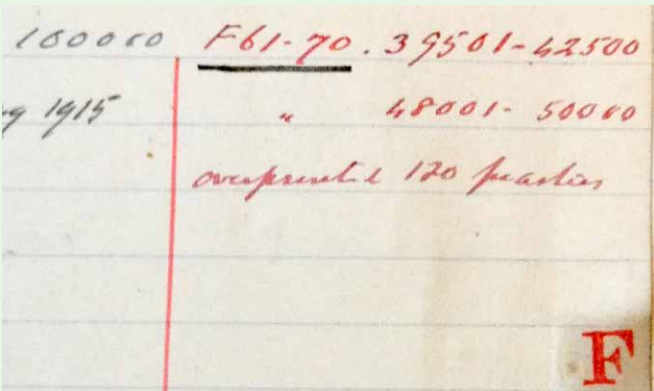 100000 F61-70. 39501-42500
1915 " 48001- 50000
overprinted 120 piastres
F